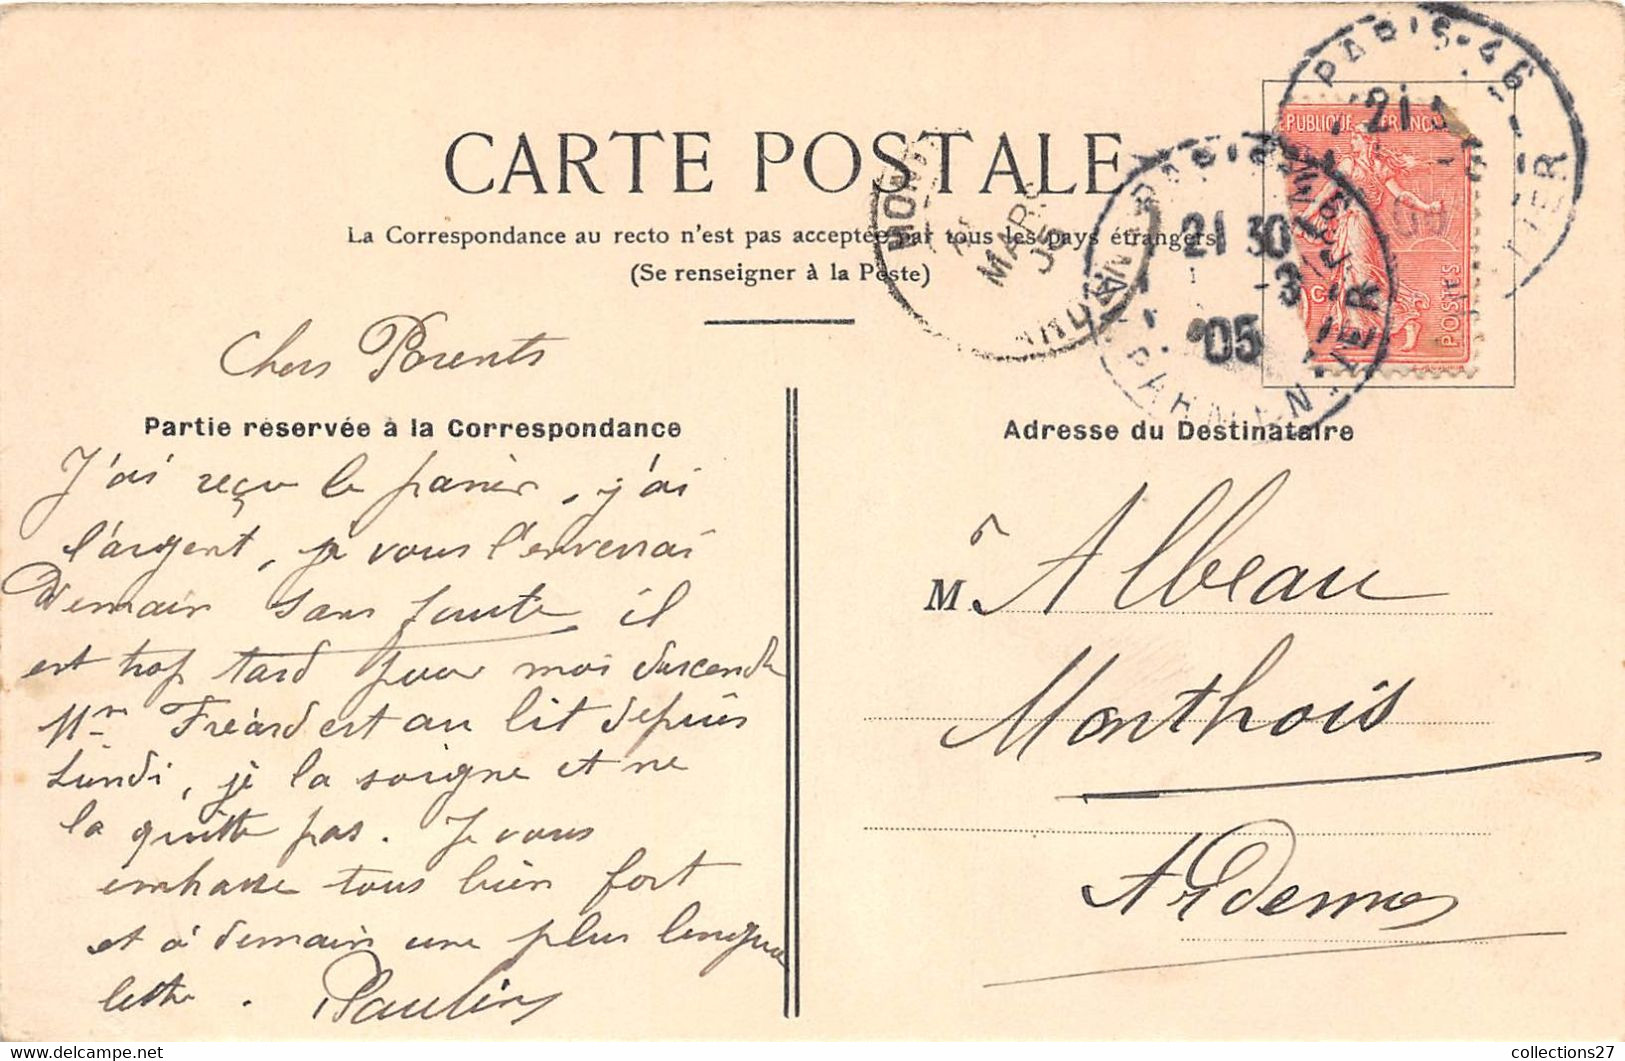 CARTE POSTALE
La Correspondance au recto n'est pas acceptée par tous les pays étrangers
(Se renseigner à la Poste)
PARIS-46
21
PARIS
21 30
-3
05
PARMENTIER
MARS
05
REPUBLIQUE FRANCAISE
POSTES
Chers Parents
Partie réservée à la Correspondance
J'ai reçu le panier, j'ai
l'argent, je vous l'enverrai
Demain sans faute il
est trop tard pour moi descendre
Mme Fréard est au lit depuis
Lundi, je la soigne et ne
la quitte pas. Je vous
embrasse tous bien fort
et à demain une plus longue
lettre. Paulin
Adresse du Destinataire
M. r Albeau
Monthois
Ardennes
collections27